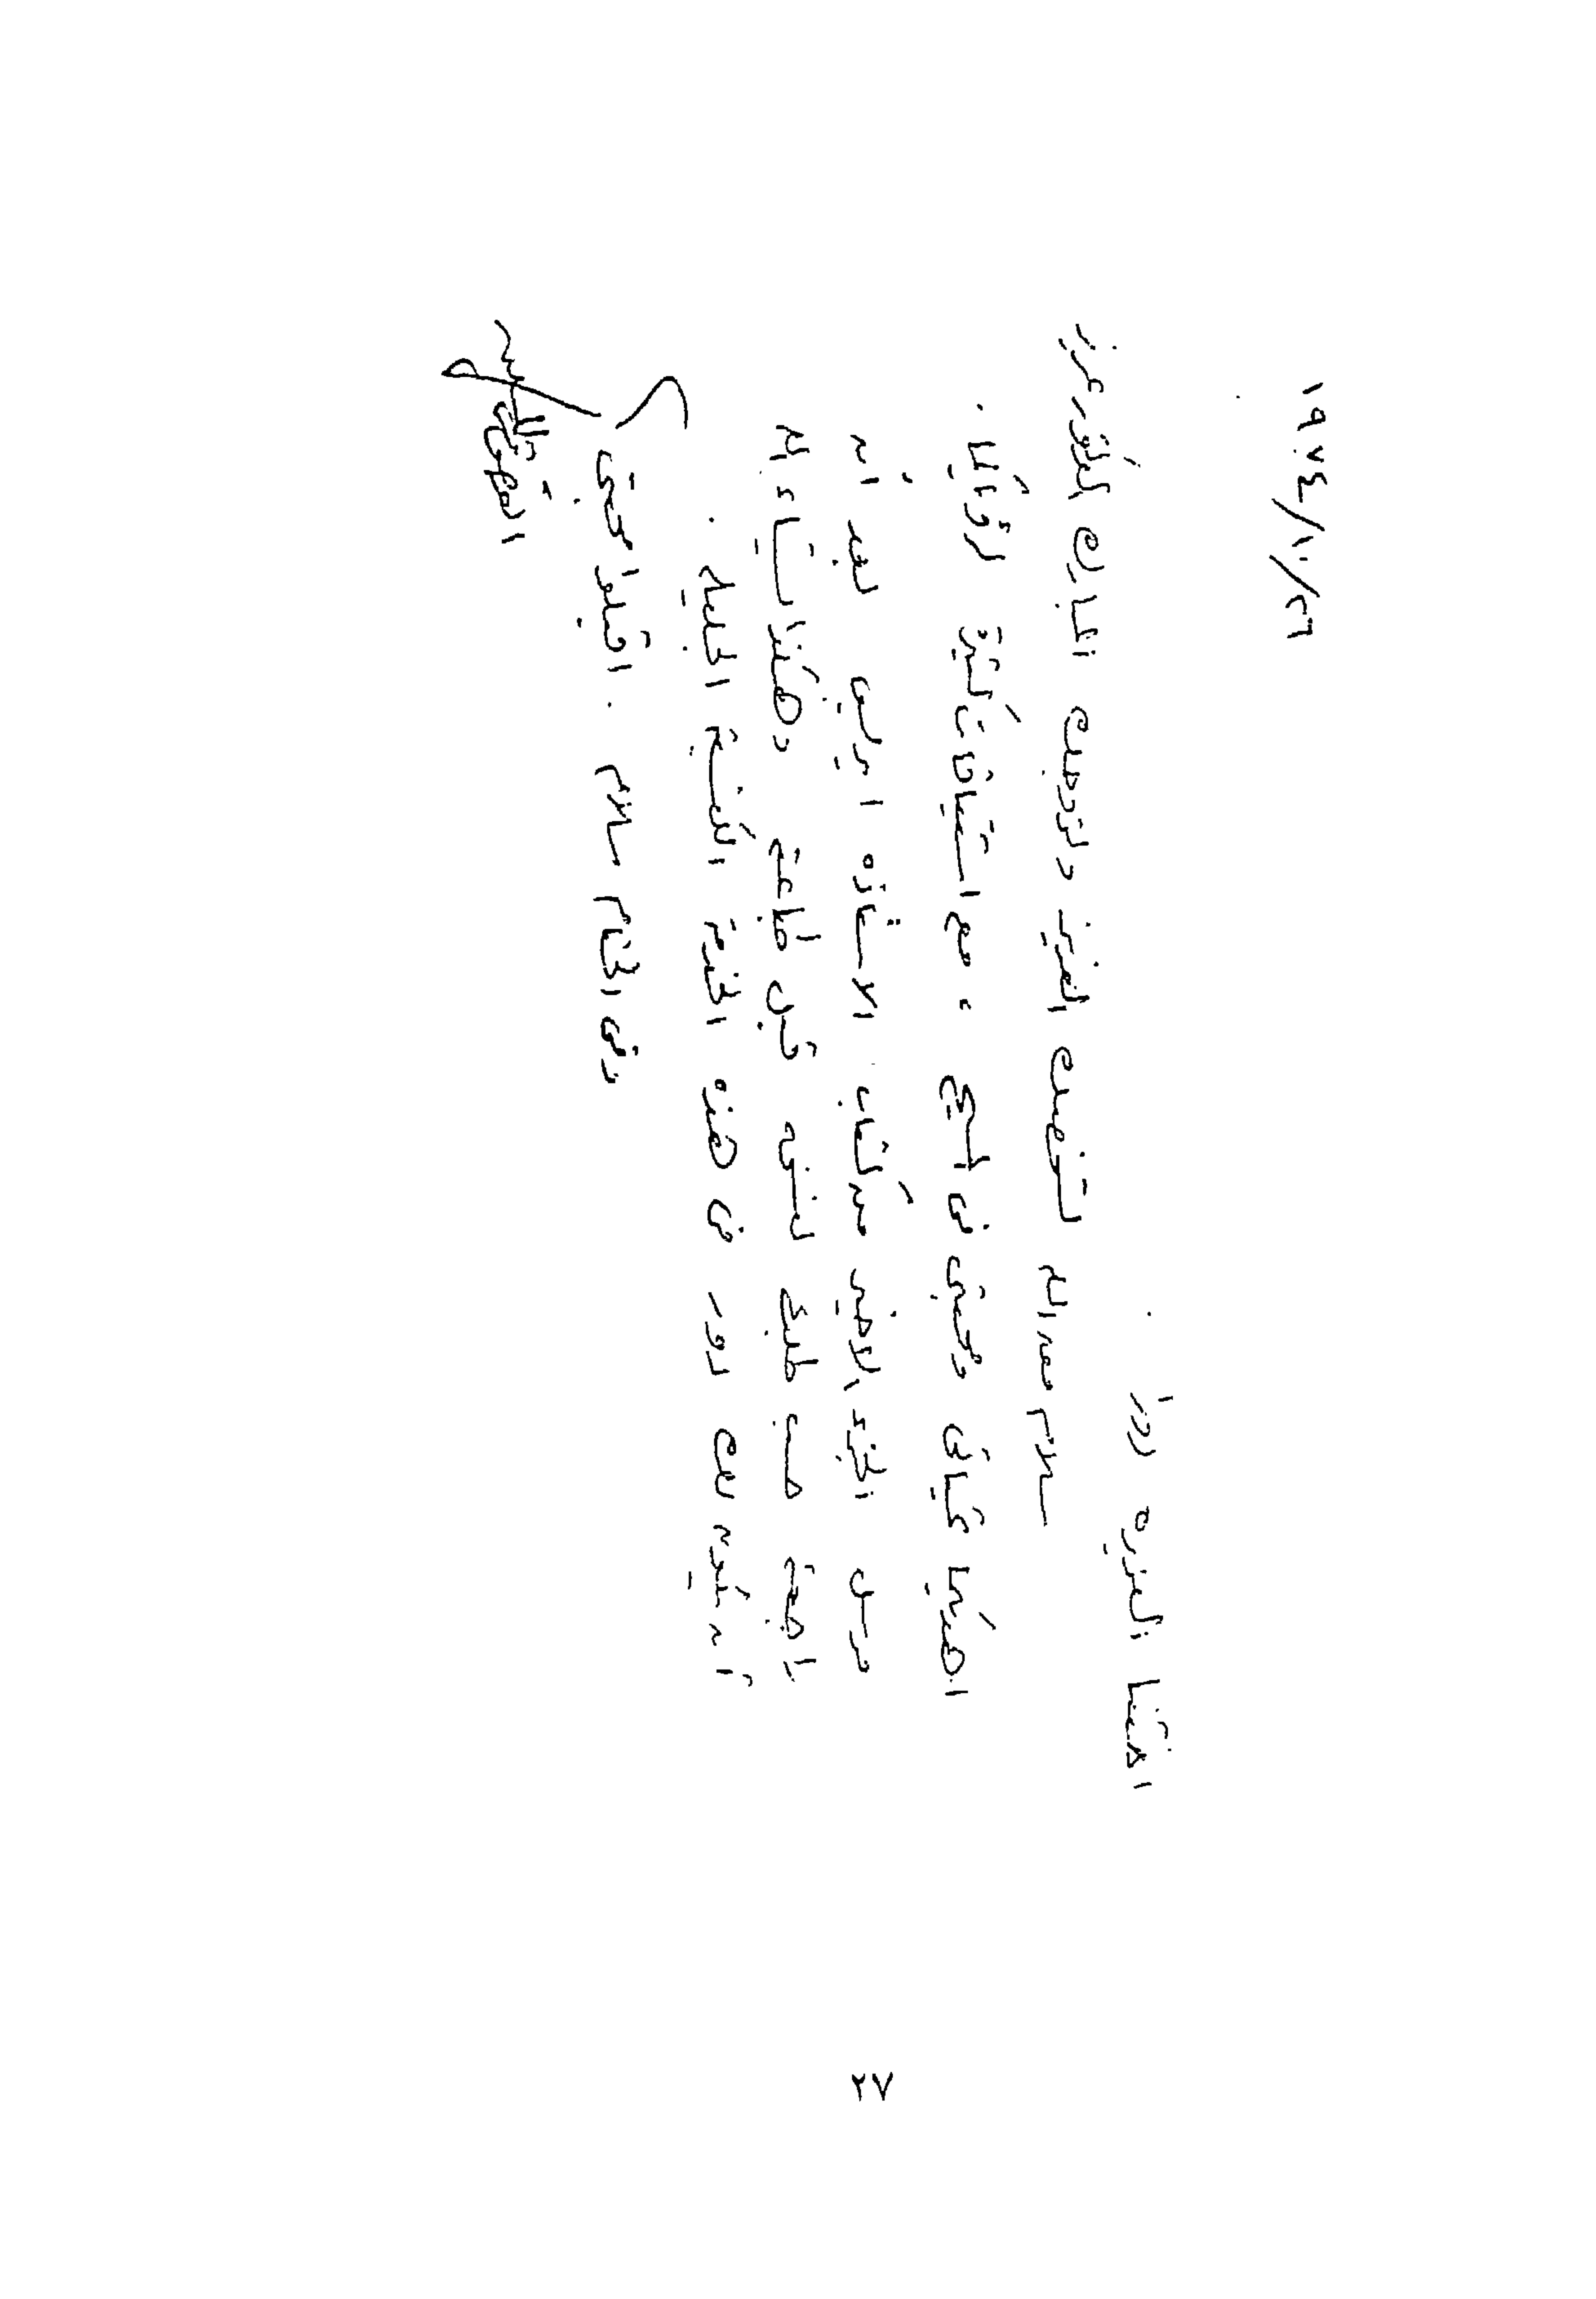 ١٩٧٤/١٠/٢٦
اختنا العزيزه روزا
سلام من الله لشخصك العزيز ولزوجك المبارك الموقر عزيز
اهديكما تحياتى ومحبتى فى المسيح ، مع اشتياقات كثيرة لرؤياكما .
مرسل الجزء الاخير من كتاب الاستاذه ايريس بعد ان
حسب طلبك قبل وهكذا شاء الله
أن يكون لك دور فى هذه الخدمة الجليلة .
وفى الختام سلام . اقبلوا محبتى
القمص
٢٧